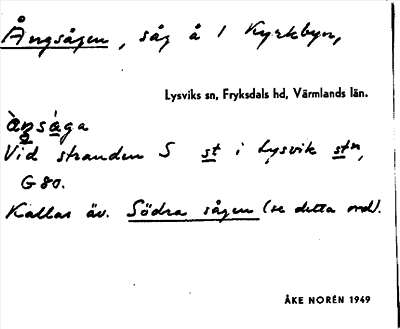 Ångsågen, såg å 1 Kyrkbyn,
Lysviks sn, Fryksdals hd, Värmlands län.
ànsága
Vid stranden S st i Lysvik stn,
G80.
Kallas äv. Södra sågen (se detta ord).
ÅKE NORÉN 1949